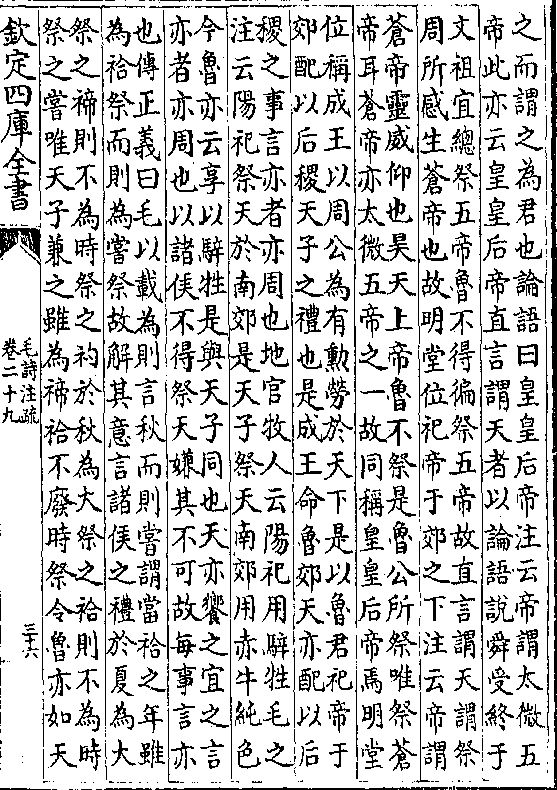 之而謂之為君也論語曰皇皇后帝注云帝謂太微五
帝此亦云皇皇后帝直言謂天者以論語說舜受終于
文祖宜總祭五帝魯不得徧祭五帝故直言謂天謂祭
周所感生蒼帝也故明堂位祀帝于郊之下注云帝謂
蒼帝靈威仰也昊天上帝魯不祭是魯公所祭唯祭蒼
帝耳蒼帝亦太微五帝之一故同稱皇皇后帝焉明堂
位稱成王以周公為有勲勞於天下是以魯君祀帝于
郊配以后稷天子之禮也是成王命魯郊天亦配以后
稷之事言亦者亦周也地官牧人云陽祀用騂牲毛之
注云陽祀祭天於南郊是天子祭天南郊用赤牛純色
今魯亦云享以騂牲是與天子同也天亦饗之宜之言
亦者亦周也以諸侯不得祭天嫌其不可故每事言亦
也傳正義曰毛以載為則言秋而則嘗謂當祫之年雖
為祫祭而則為嘗祭故解其意言諸侯之禮於夏為大
祭之禘則不為時祭之礿於秋為大祭之祫則不為時
祭之嘗唯天子兼之雖為禘祫不廢時祭令魯亦如天
欽定四庫全書
毛詩注疏
卷二十九
三十六